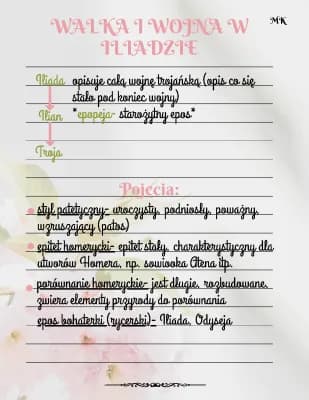 WALKA I WOJNA W
ILIADZIE
MK
Iliada opisuje całą wojnę trojańską (opis co się
stało pod koniec wojny)
Ilian *epopeja- starożytny epos*
Troja
Pojęcia:
styl patetyczny- uroczysty, podniosły, poważny,
wzruszający (patos)
epitet homerycki- epitet stały, charakterystyczny dla
utworów Homera, np. sowiooka Atena itp.
porównanie homeryckie- jest długie, rozbudowane,
zwiera elementy przyrody do porównania
epos bohaterki (rycerski)- Iliada, Odyseja